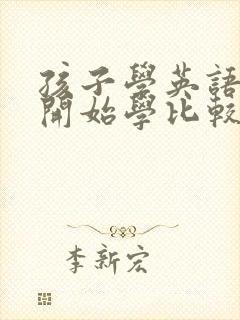 孩子學英語
開始學比較
李新宏